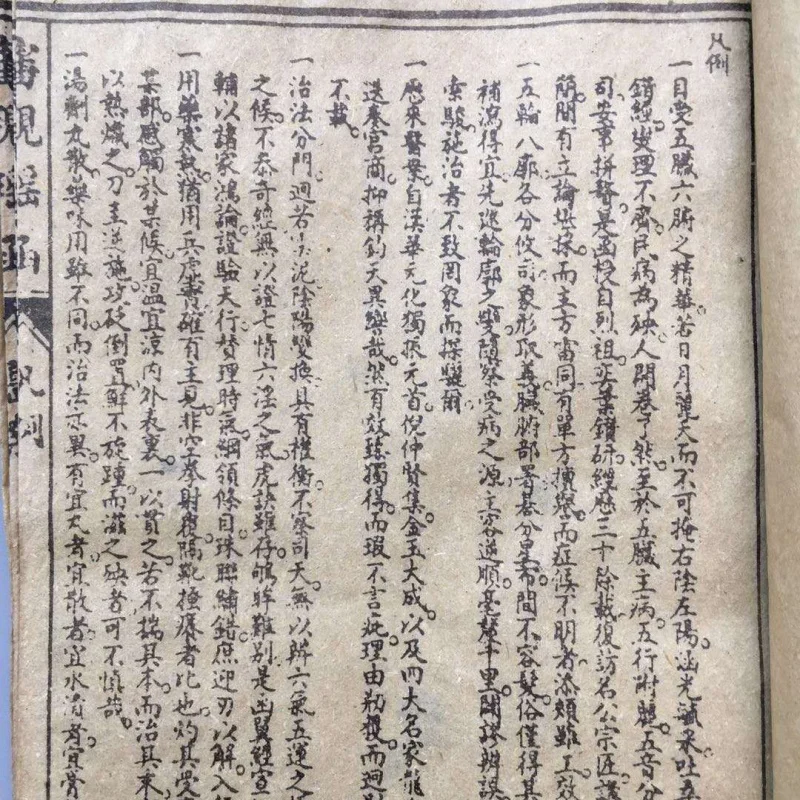 凡例
一目受五臟六腑之精華若日月麗天而不可掩右陰左陽涵光毓采吐五
錯經變理不齊民病為殃人開卷了然至於五臟主病五行附麗五音分
司安事拼醫是函授自烈祖奕葉鑽研經歷三十餘載復訪名公宗匠
簡間有立論堪採而主方雷同有單方擅譽而症候不明者添頰雖工效
一五輪八廓各分攸司象形取義臟腑部署碁分星布間不容髮俗僅得其
補瀉得宜先進輪廓之變隨察受病之源主客逆順毫釐千里關謬辨誤
索驗施治者不致罔象而探驪爾
一歷來醫案自漢華元化獨振元首倪仲賢集金玉大成以及四大名家龍
迭奏宮商抑稱鈞天異樂哉然有效臻獨得而瑕不言疵理由勦襲而迥
不載
一治法分門迥若雲泥陰陽變換具有權衡不察司天無以辨六氣五運之
之候不叅奇經無以證七情六淫之氣虎訣雖存鴝眸難別是函翼經宣
輔以諸家鴻論證驗天行贊理時氣綱領條目珠聯繡錯庶迎刃以解入
一用藥寒熱猶用兵虛實確有主見非空拳射覆隔靴搔癢者比也灼其受
某部感觸於某候宜溫宜涼內外表裏一以貫之若不揣其本而治其末
以熱熾之刀圭逆施攻砭倒置鮮不旋踵而滋之殃者可不慎哉
一湯劑丸散藥味用雖不同而治法亦異有宜丸者宜散者宜水清者宜膏
審視瑤函
凡例